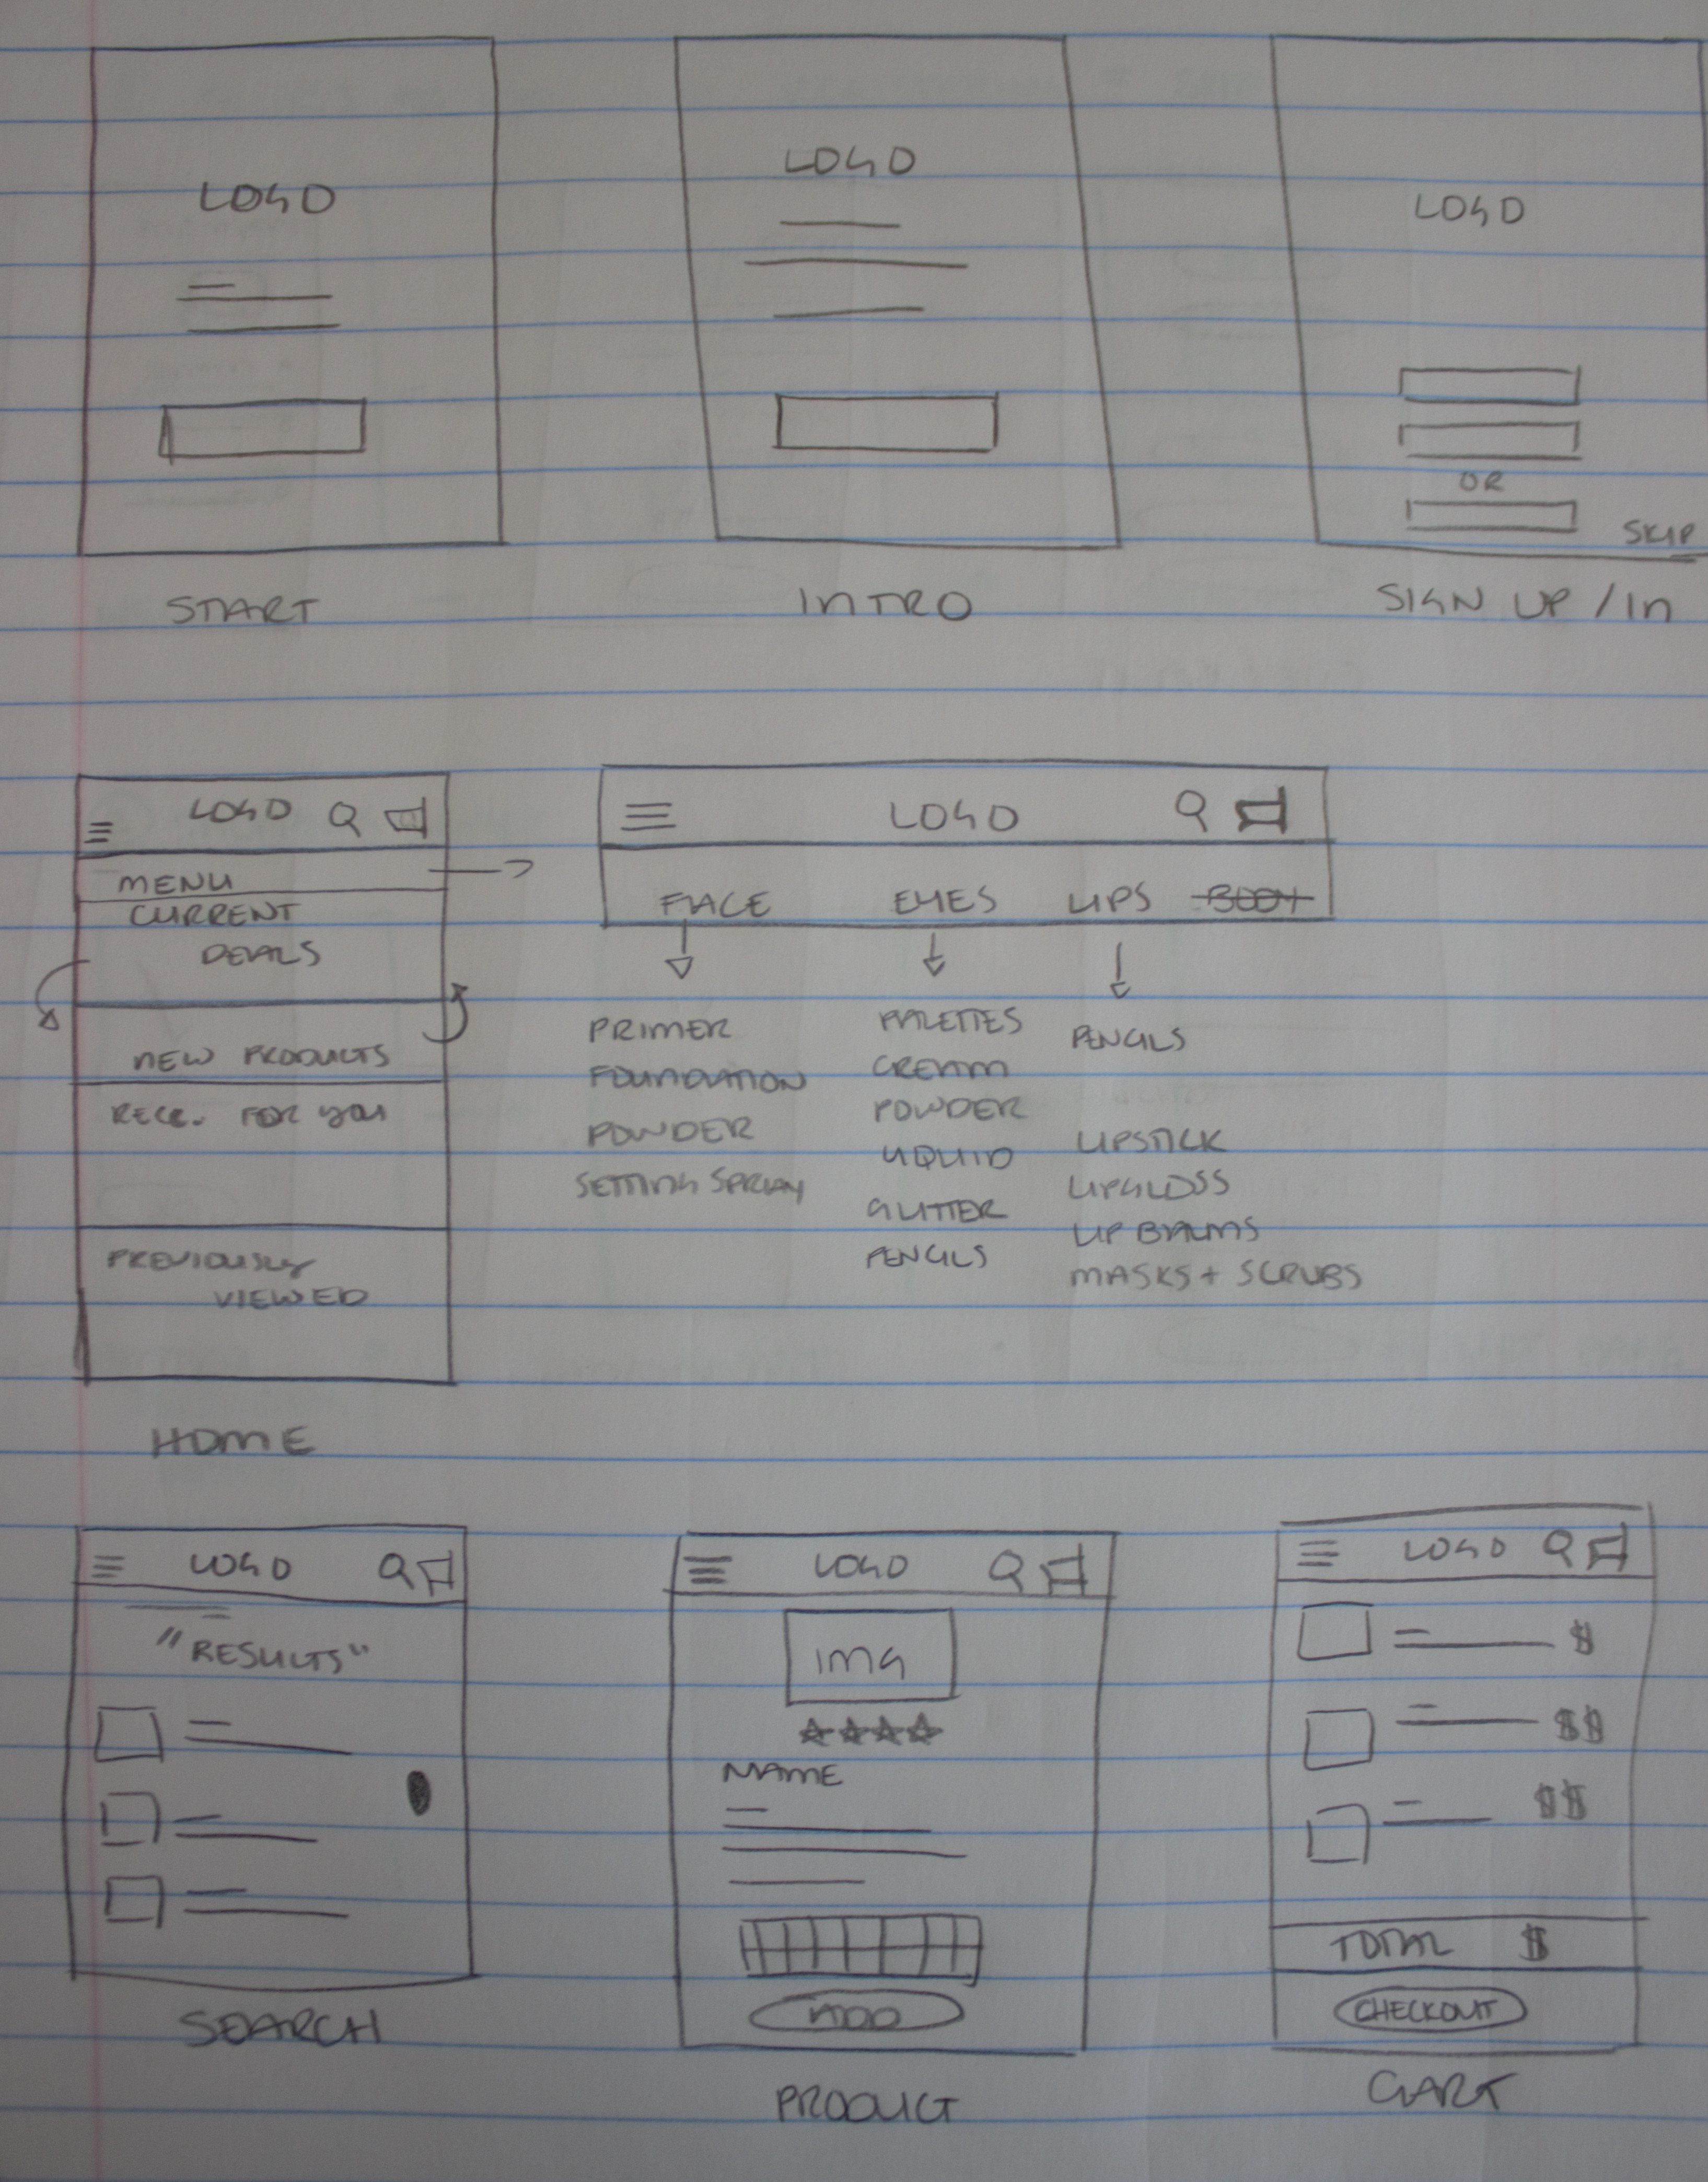 LOGO
LOGO
LOGO
OR
SKIP
START
INTRO
SIGN UP / IN
LOGO
MENU
CURRENT
DEALS
NEW PRODUCTS
RECC. FOR YOU
PREVIOUSLY
VIEWED
HOME
LOGO
FACE EYES LIPS BODY
PRIMER
FOUNDATION
POWDER
SETTING SPRAY
PALETTES
CREAM
POWDER
LIQUID
GLITTER
PENCILS
PENCILS
LIPSTICK
LIPGLOSS
LIP BALMS
MASKS + SCRUBS
LOGO
"RESULTS"
SEARCH
LOGO
IMG
NAME
ADD
PRODUCT
LOGO
$
$$
$$
TOTAL $
CHECKOUT
CART